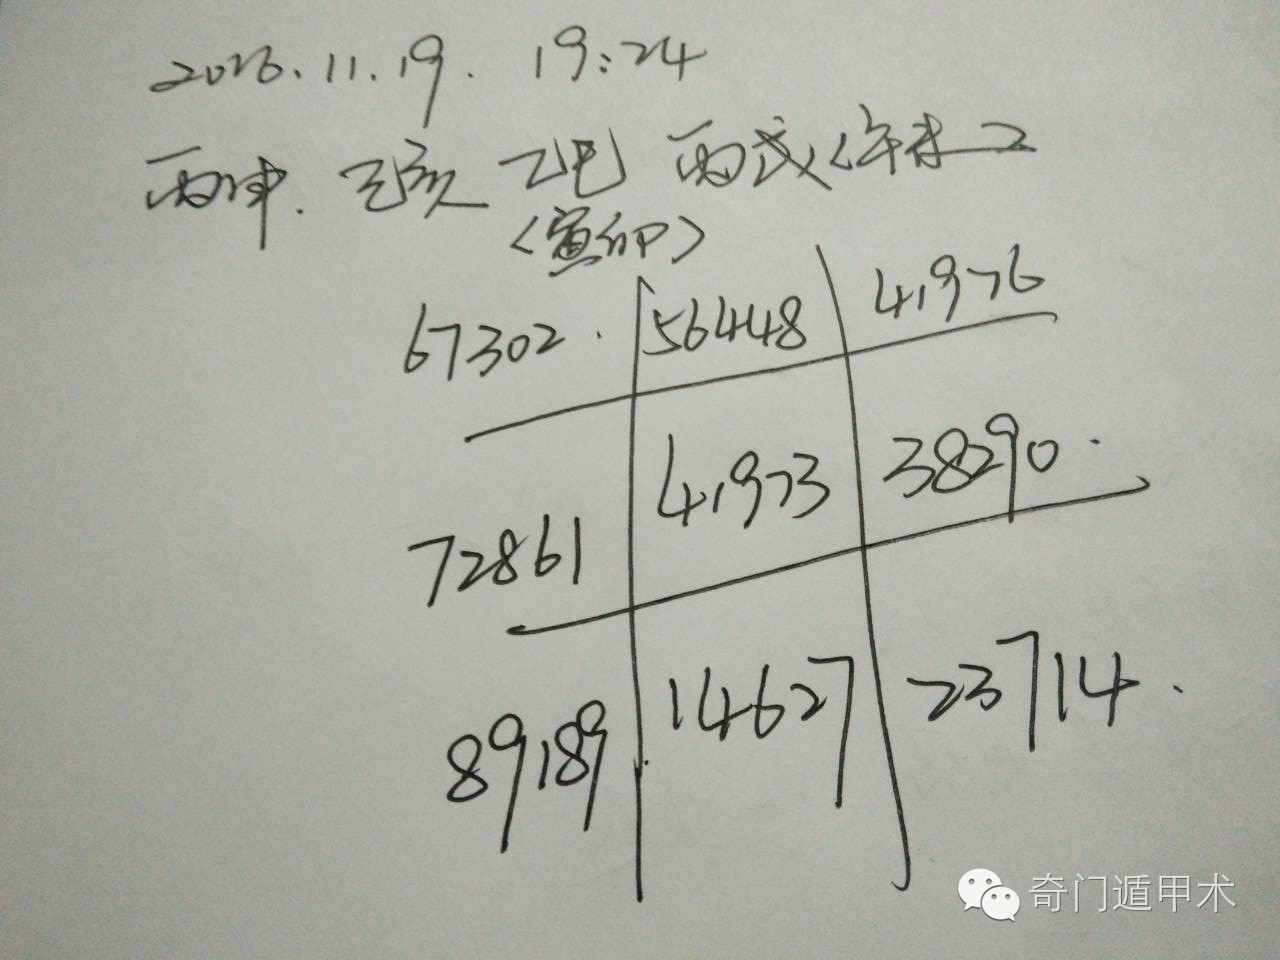 2016.11.19. 19:24
丙申. 己亥 乙巳 丙戌<午未>
<寅卯>
67302. 56448 41976
72861 41973 38290.
89189 14627 23714.
奇门遁甲术